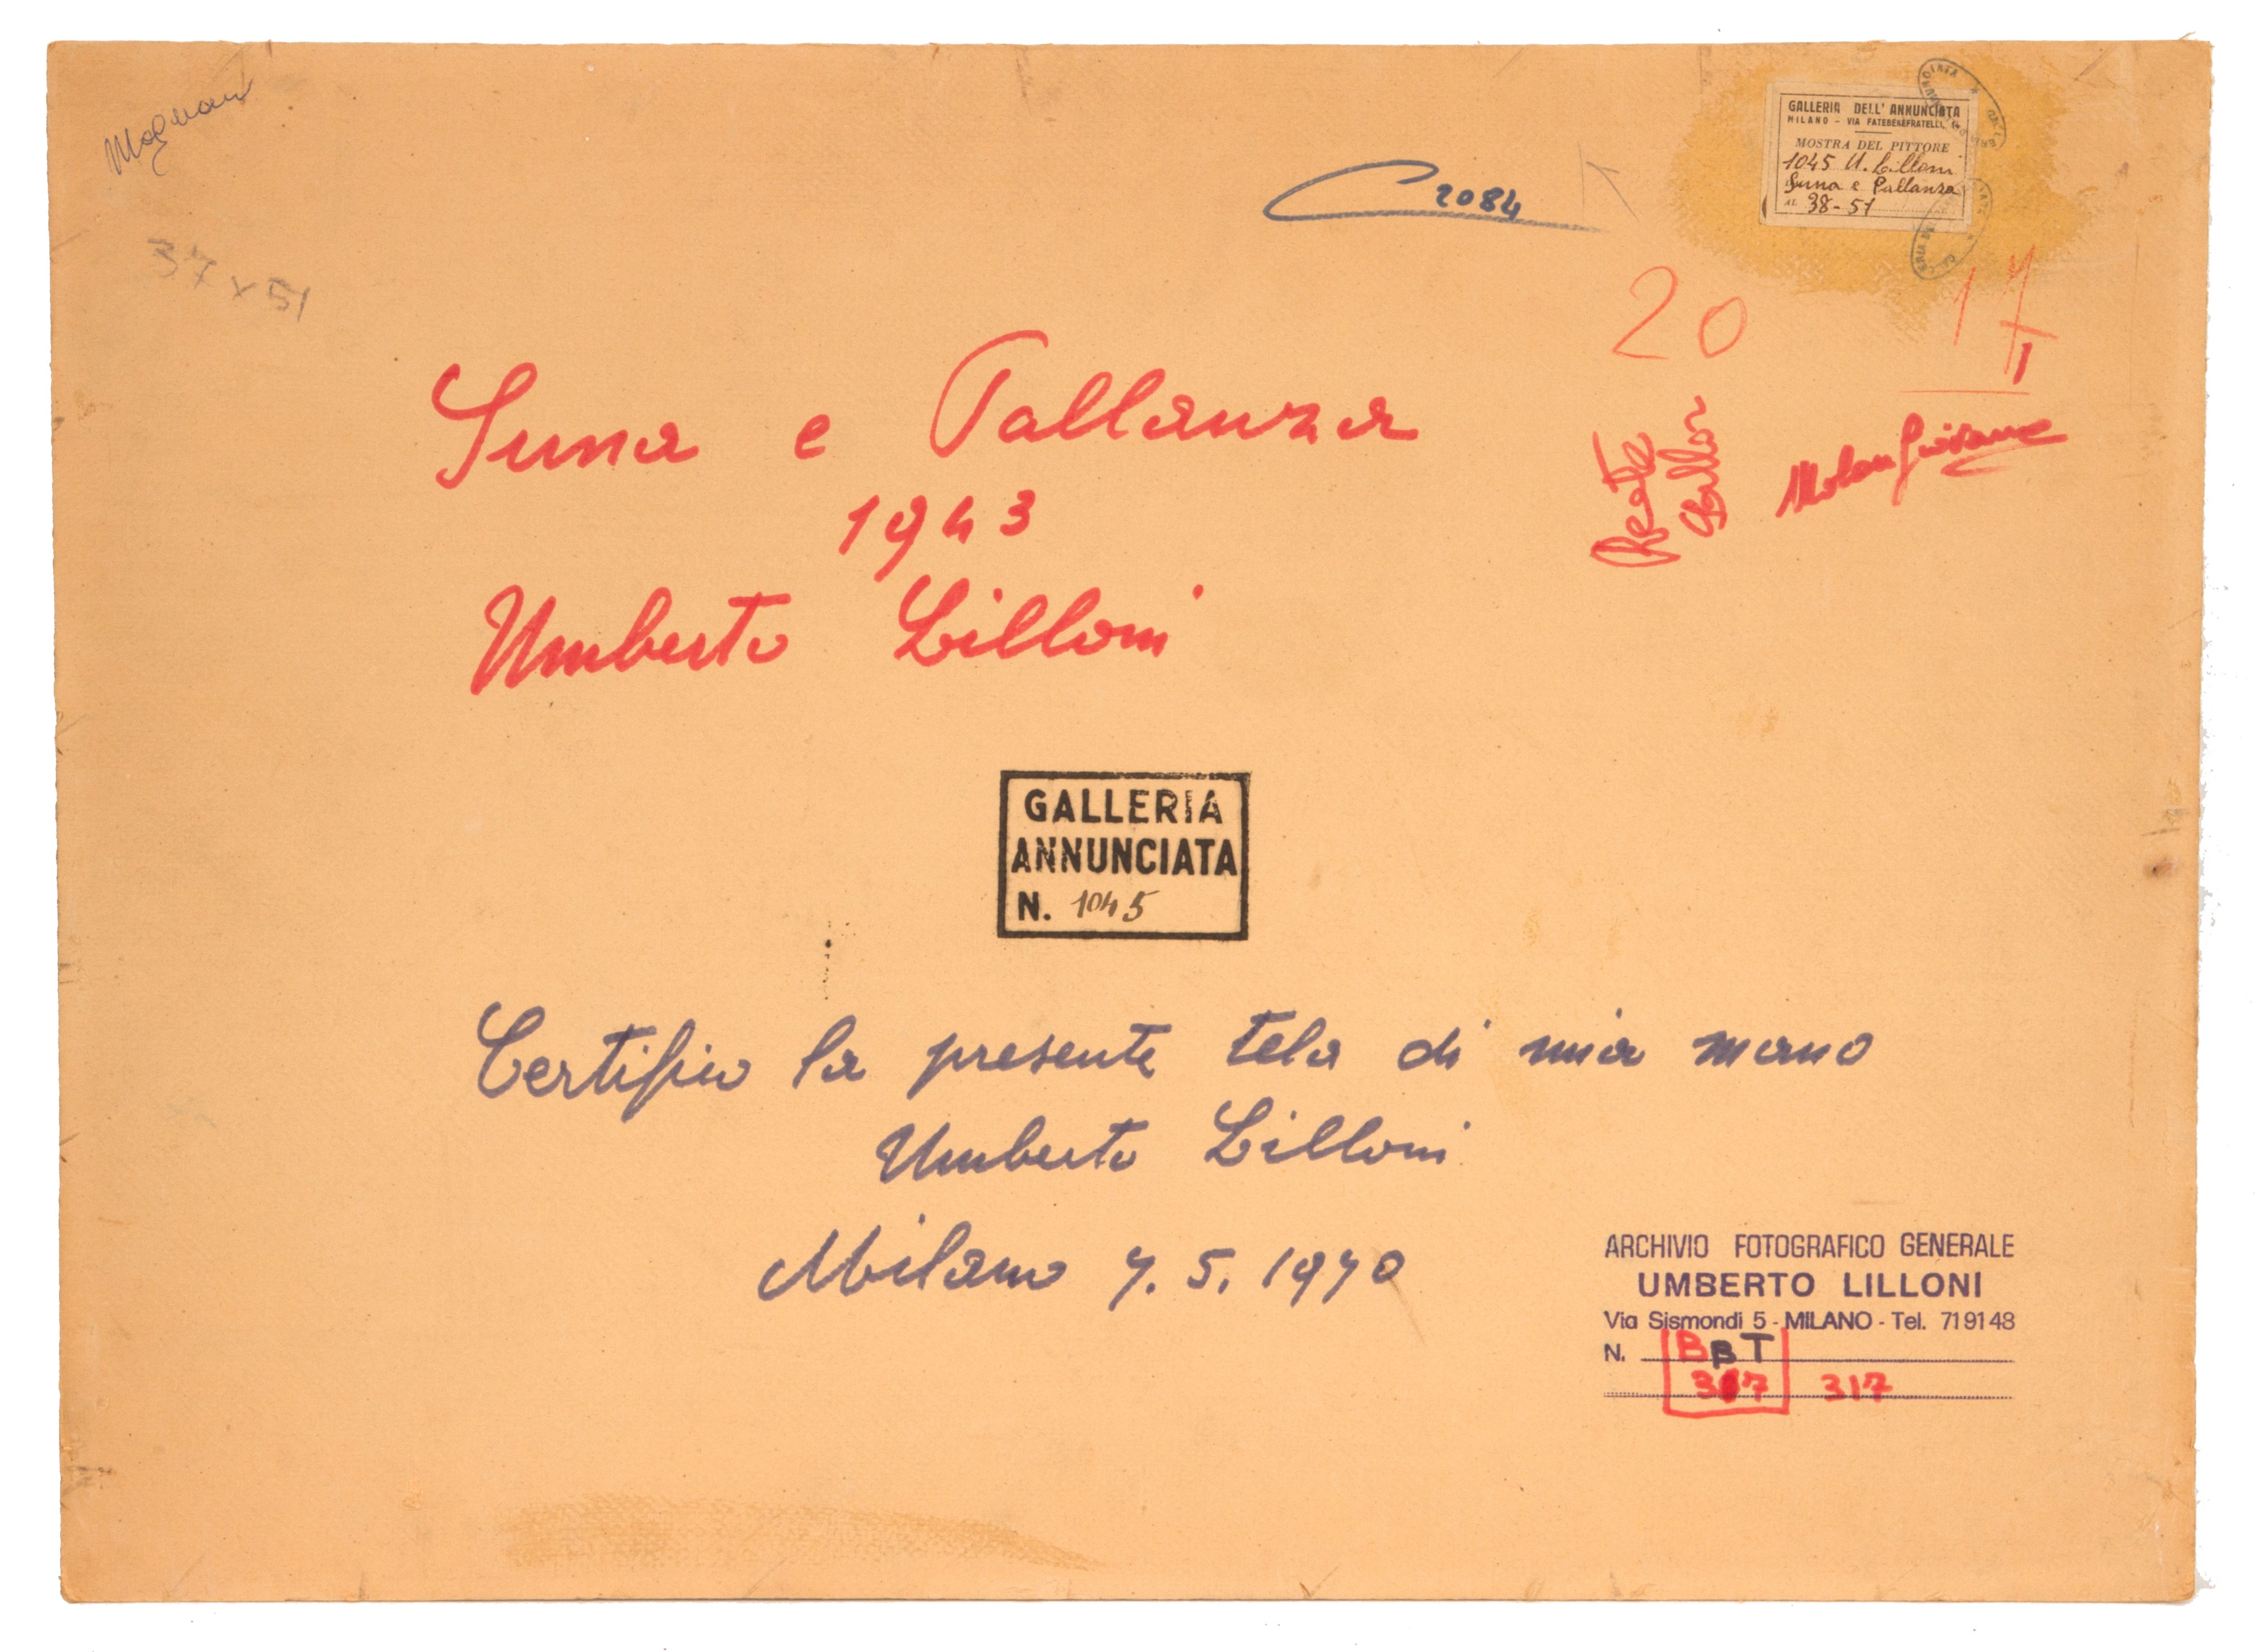 37 x 51
2084
GALLERIA DELL' ANNUNCIATA
MILANO - VIA FATEBENEFRATELLI
MOSTRA DEL PITTORE
1045 U. Lilloni
Suna e Pallanza
AL 38-51
20
17
Suna e Pallanza
1943
Umberto Lilloni
GALLERIA
ANNUNCIATA
N. 1045
Certifico la presente tela di mia mano
Umberto Lilloni
Milano 7.5.1970
ARCHIVIO FOTOGRAFICO GENERALE
UMBERTO LILLONI
Via Sismondi 5 - MILANO - Tel. 719148
N. B B T
317 317